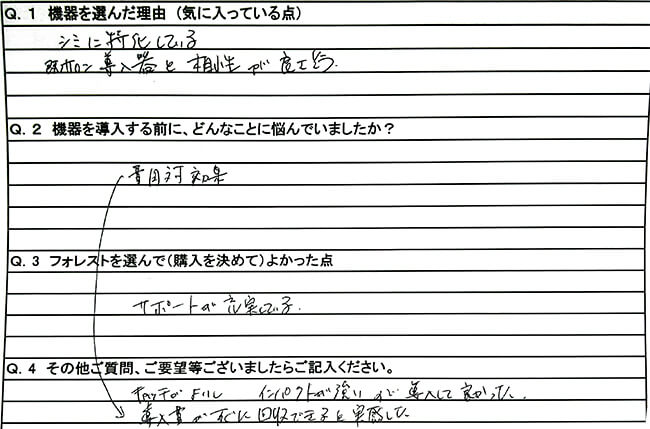 Q. 1 機器を選んだ理由（気に入っている点）
シミに特化している
導入器と相性が良さそう.
Q. 2 機器を導入する前に、どんなことに悩んでいましたか？
費用対効果
Q. 3 フォレストを選んで（購入を決めて）よかった点
サポートが充実している.
Q. 4 その他ご質問、ご要望等ございましたらご記入ください。
インパクトが強いが導入して良かった.
導入費がすぐに回収できると実感した